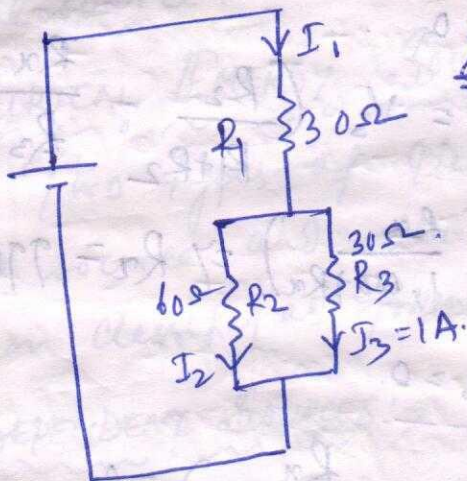 I₁
R₁ 30Ω
30Ω.
60Ω R2 R3
I₂ I₃=1A.